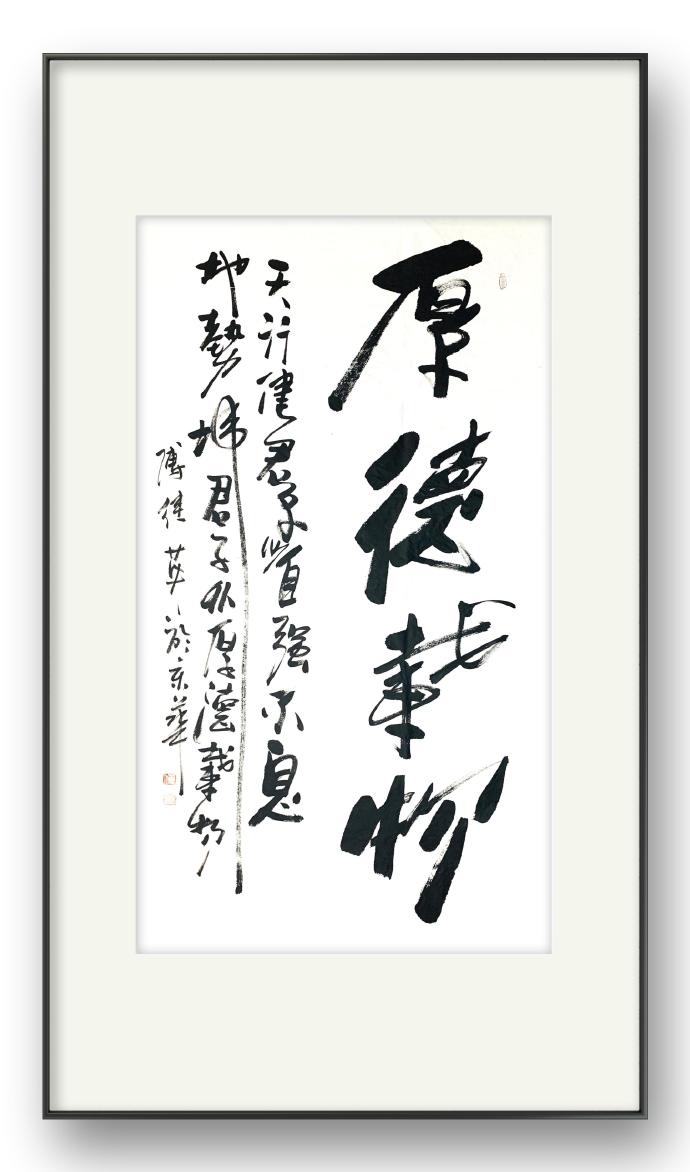 厚德載物
天行健君子以自强不息
地勢坤君子以厚德載物
傅佳英於京華